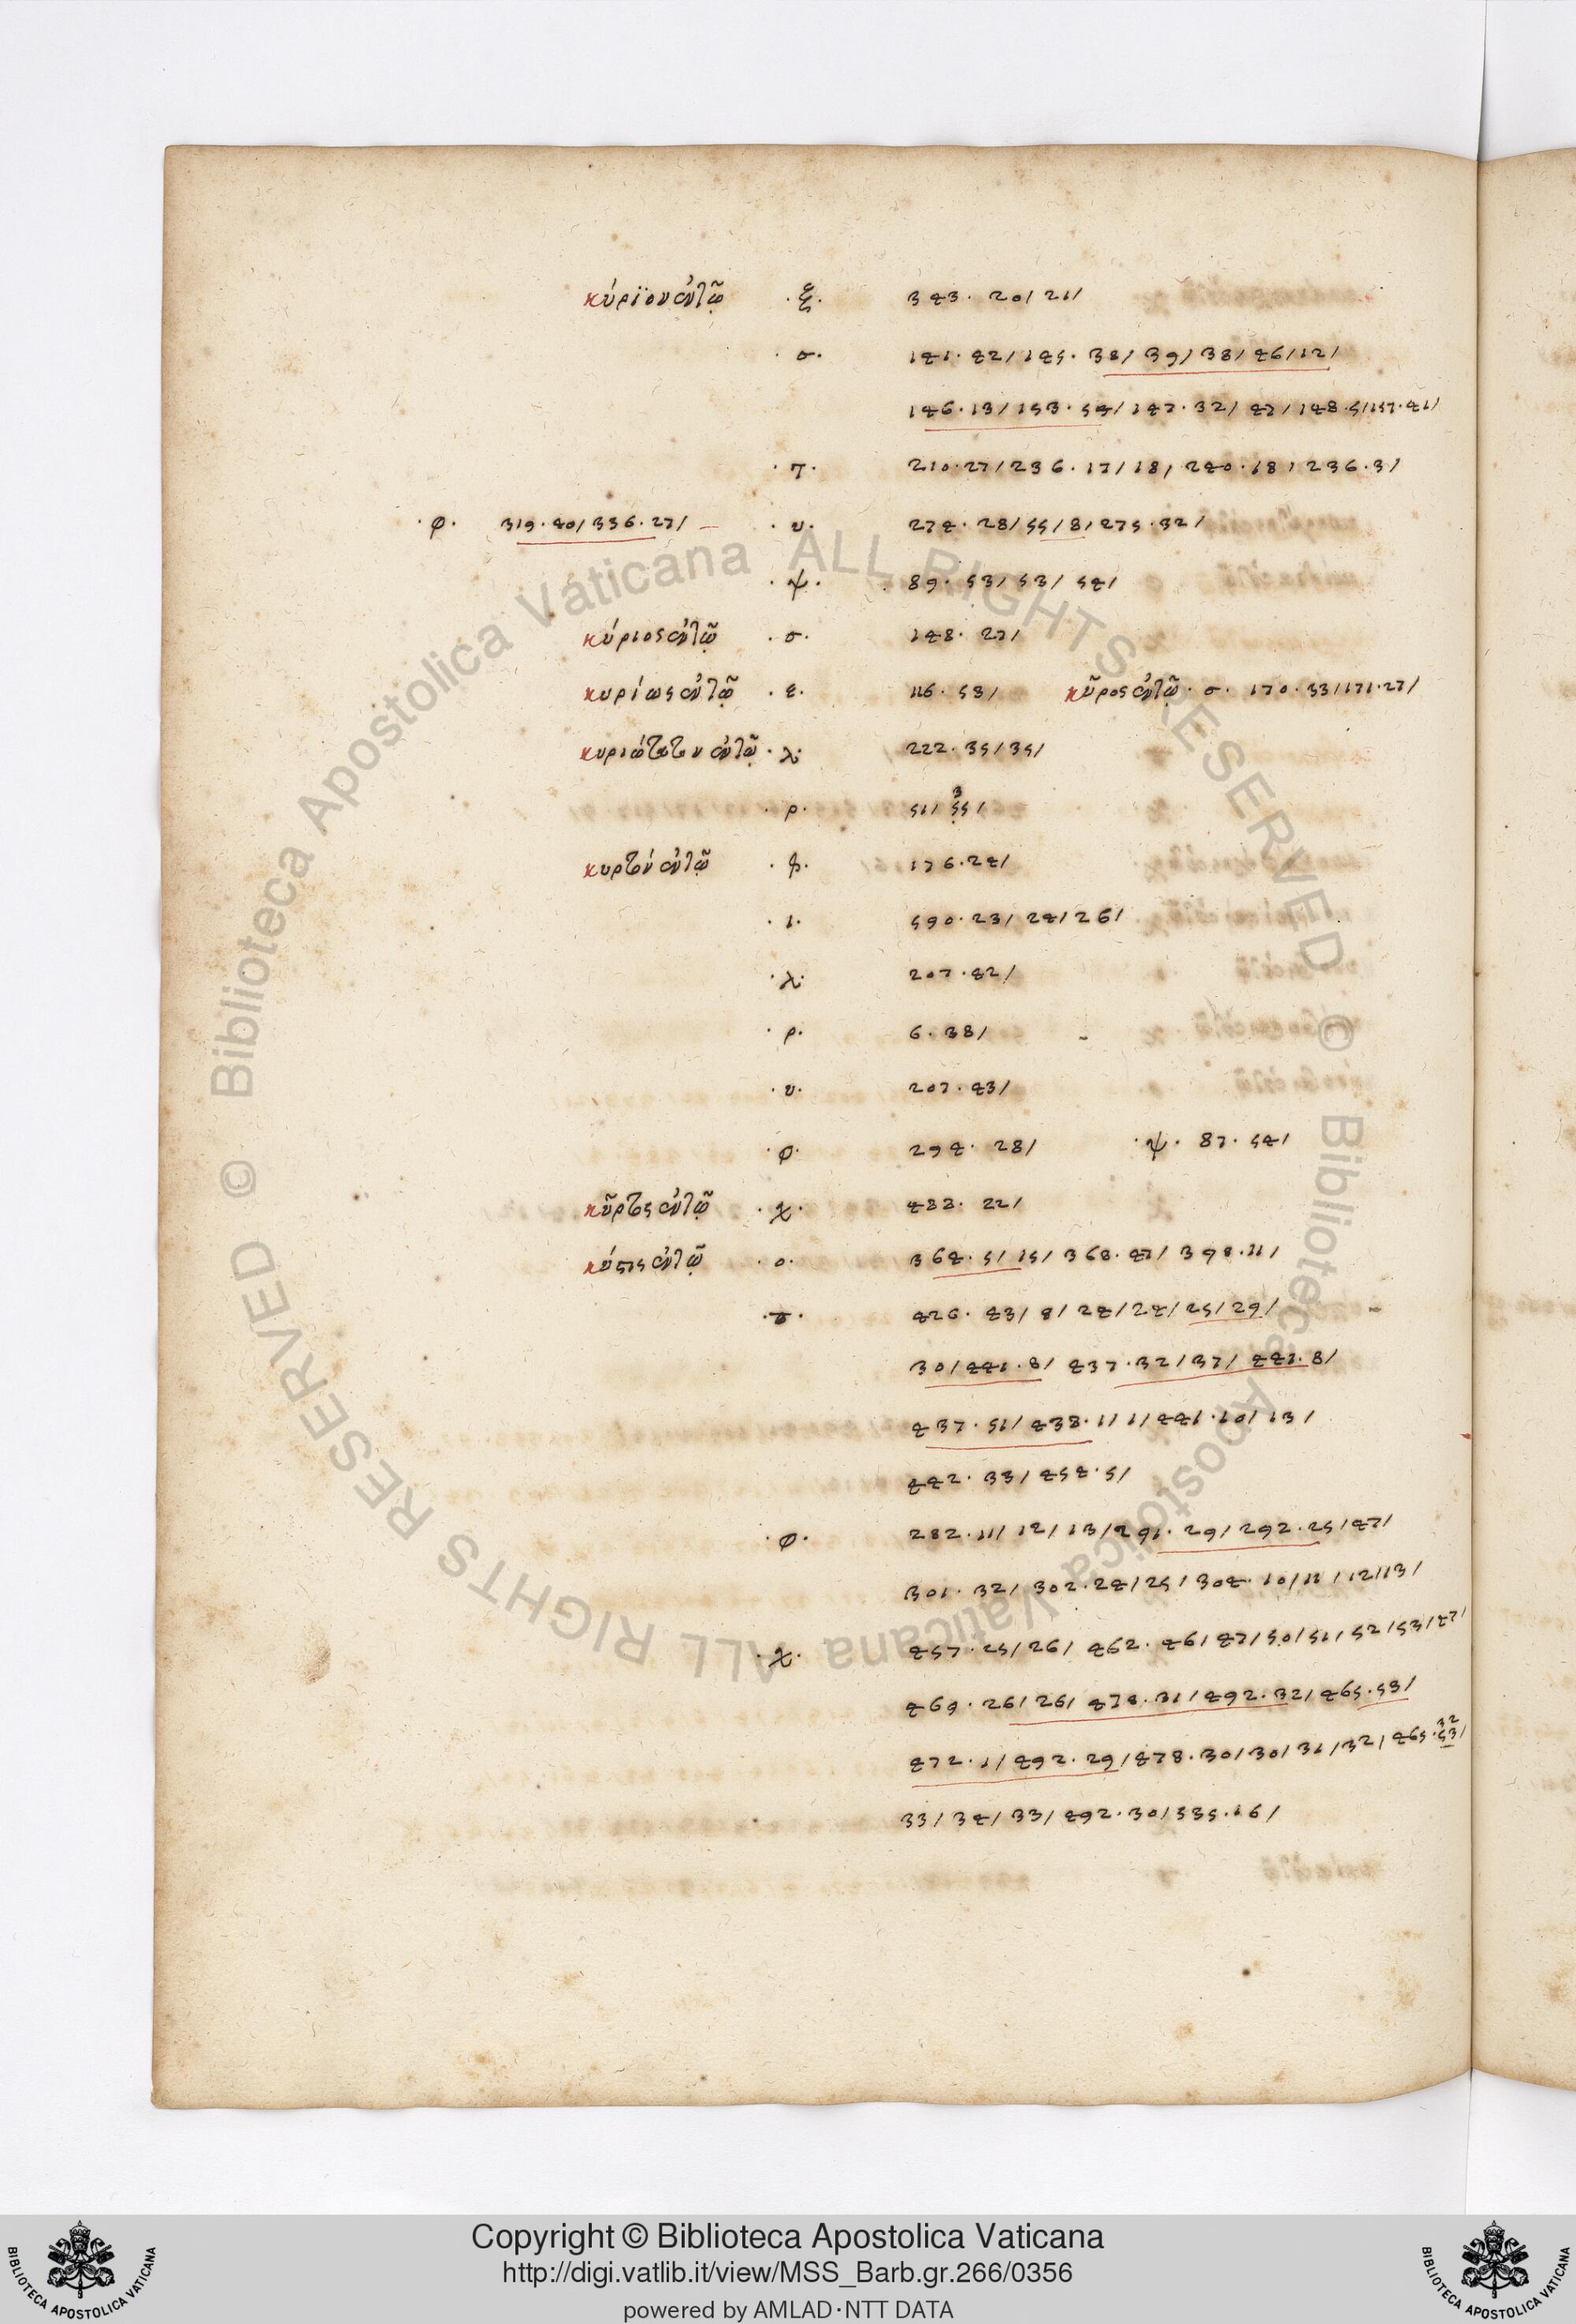 κύριον ἐν τῷ · ξ · 343 · 20 / 21 /
· σ · 141 · 42 / 145 · 38 / 39 / 38 / 46 / 12 /
146 · 13 / 153 · 54 / 147 · 32 / 47 / 148 · 5 / 157 · 41 /
· τ · 210 · 27 / 236 · 17 / 18 / 240 · 18 / 236 · 3 /
· φ · 319 · 40 / 336 · 27 / — · υ · 274 · 28 / 55 / 8 / 275 · 32 /
· ψ · 89 · 53 / 53 / 54 /
κύριος ἐν τῷ · σ · 148 · 27 /
κυρίως ἐν τῷ · ε · 116 · 53 / κῦρος ἐν τῷ · σ · 170 · 33 / 171 · 27 /
κυριώτατον ἐν τῷ · λ · 222 · 35 / 35 /
· ρ · 51 / 55 /
κυρτόν ἐν τῷ · 176 · 24 /
· ι · 590 · 23 / 24 / 26 /
· λ · 207 · 42 /
· ρ · 6 · 38 /
· υ · 207 · 43 /
· φ · 294 · 28 / · ψ · 87 · 54 /
κῦρτος ἐν τῷ · χ · 433 · 22 /
κύστις ἐν τῷ · ο · 364 · 5 / 15 / 368 · 47 / 398 · 11 /
426 · 43 / 8 / 24 / 24 / 25 / 29 /
30 / 441 · 8 / 437 · 32 / 37 / 441 · 8 /
437 · 51 / 438 · 1 / 1 / 441 · 10 / 13 /
442 · 33 / 454 · 5 /
· φ · 282 · 11 / 12 / 13 / 291 · 29 / 292 · 25 / 47 /
301 · 32 / 302 · 24 / 25 / 304 · 10 / 11 / 12 / 13 /
· χ · 457 · 25 / 26 / 462 · 46 / 47 / 50 / 51 / 52 / 53 / 47 /
469 · 26 / 26 / 478 · 31 / 492 · 32 / 465 · 53 /
472 · 1 / 492 · 29 / 478 · 30 / 30 / 31 / 32 / 465 · 53 /
33 / 34 / 33 / 492 · 30 / 535 · 16 /
© Biblioteca Apostolica Vaticana ALL RIGHTS RESERVED © Biblioteca Apostolica Vaticana ALL RIGHTS RESERVED
Copyright © Biblioteca Apostolica Vaticana
http://digi.vatlib.it/view/MSS_Barb.gr.266/0356
powered by AMLAD·NTT DATA
BIBLIOTECA APOSTOLICA VATICANA
BIBLIOTECA APOSTOLICA VATICANA